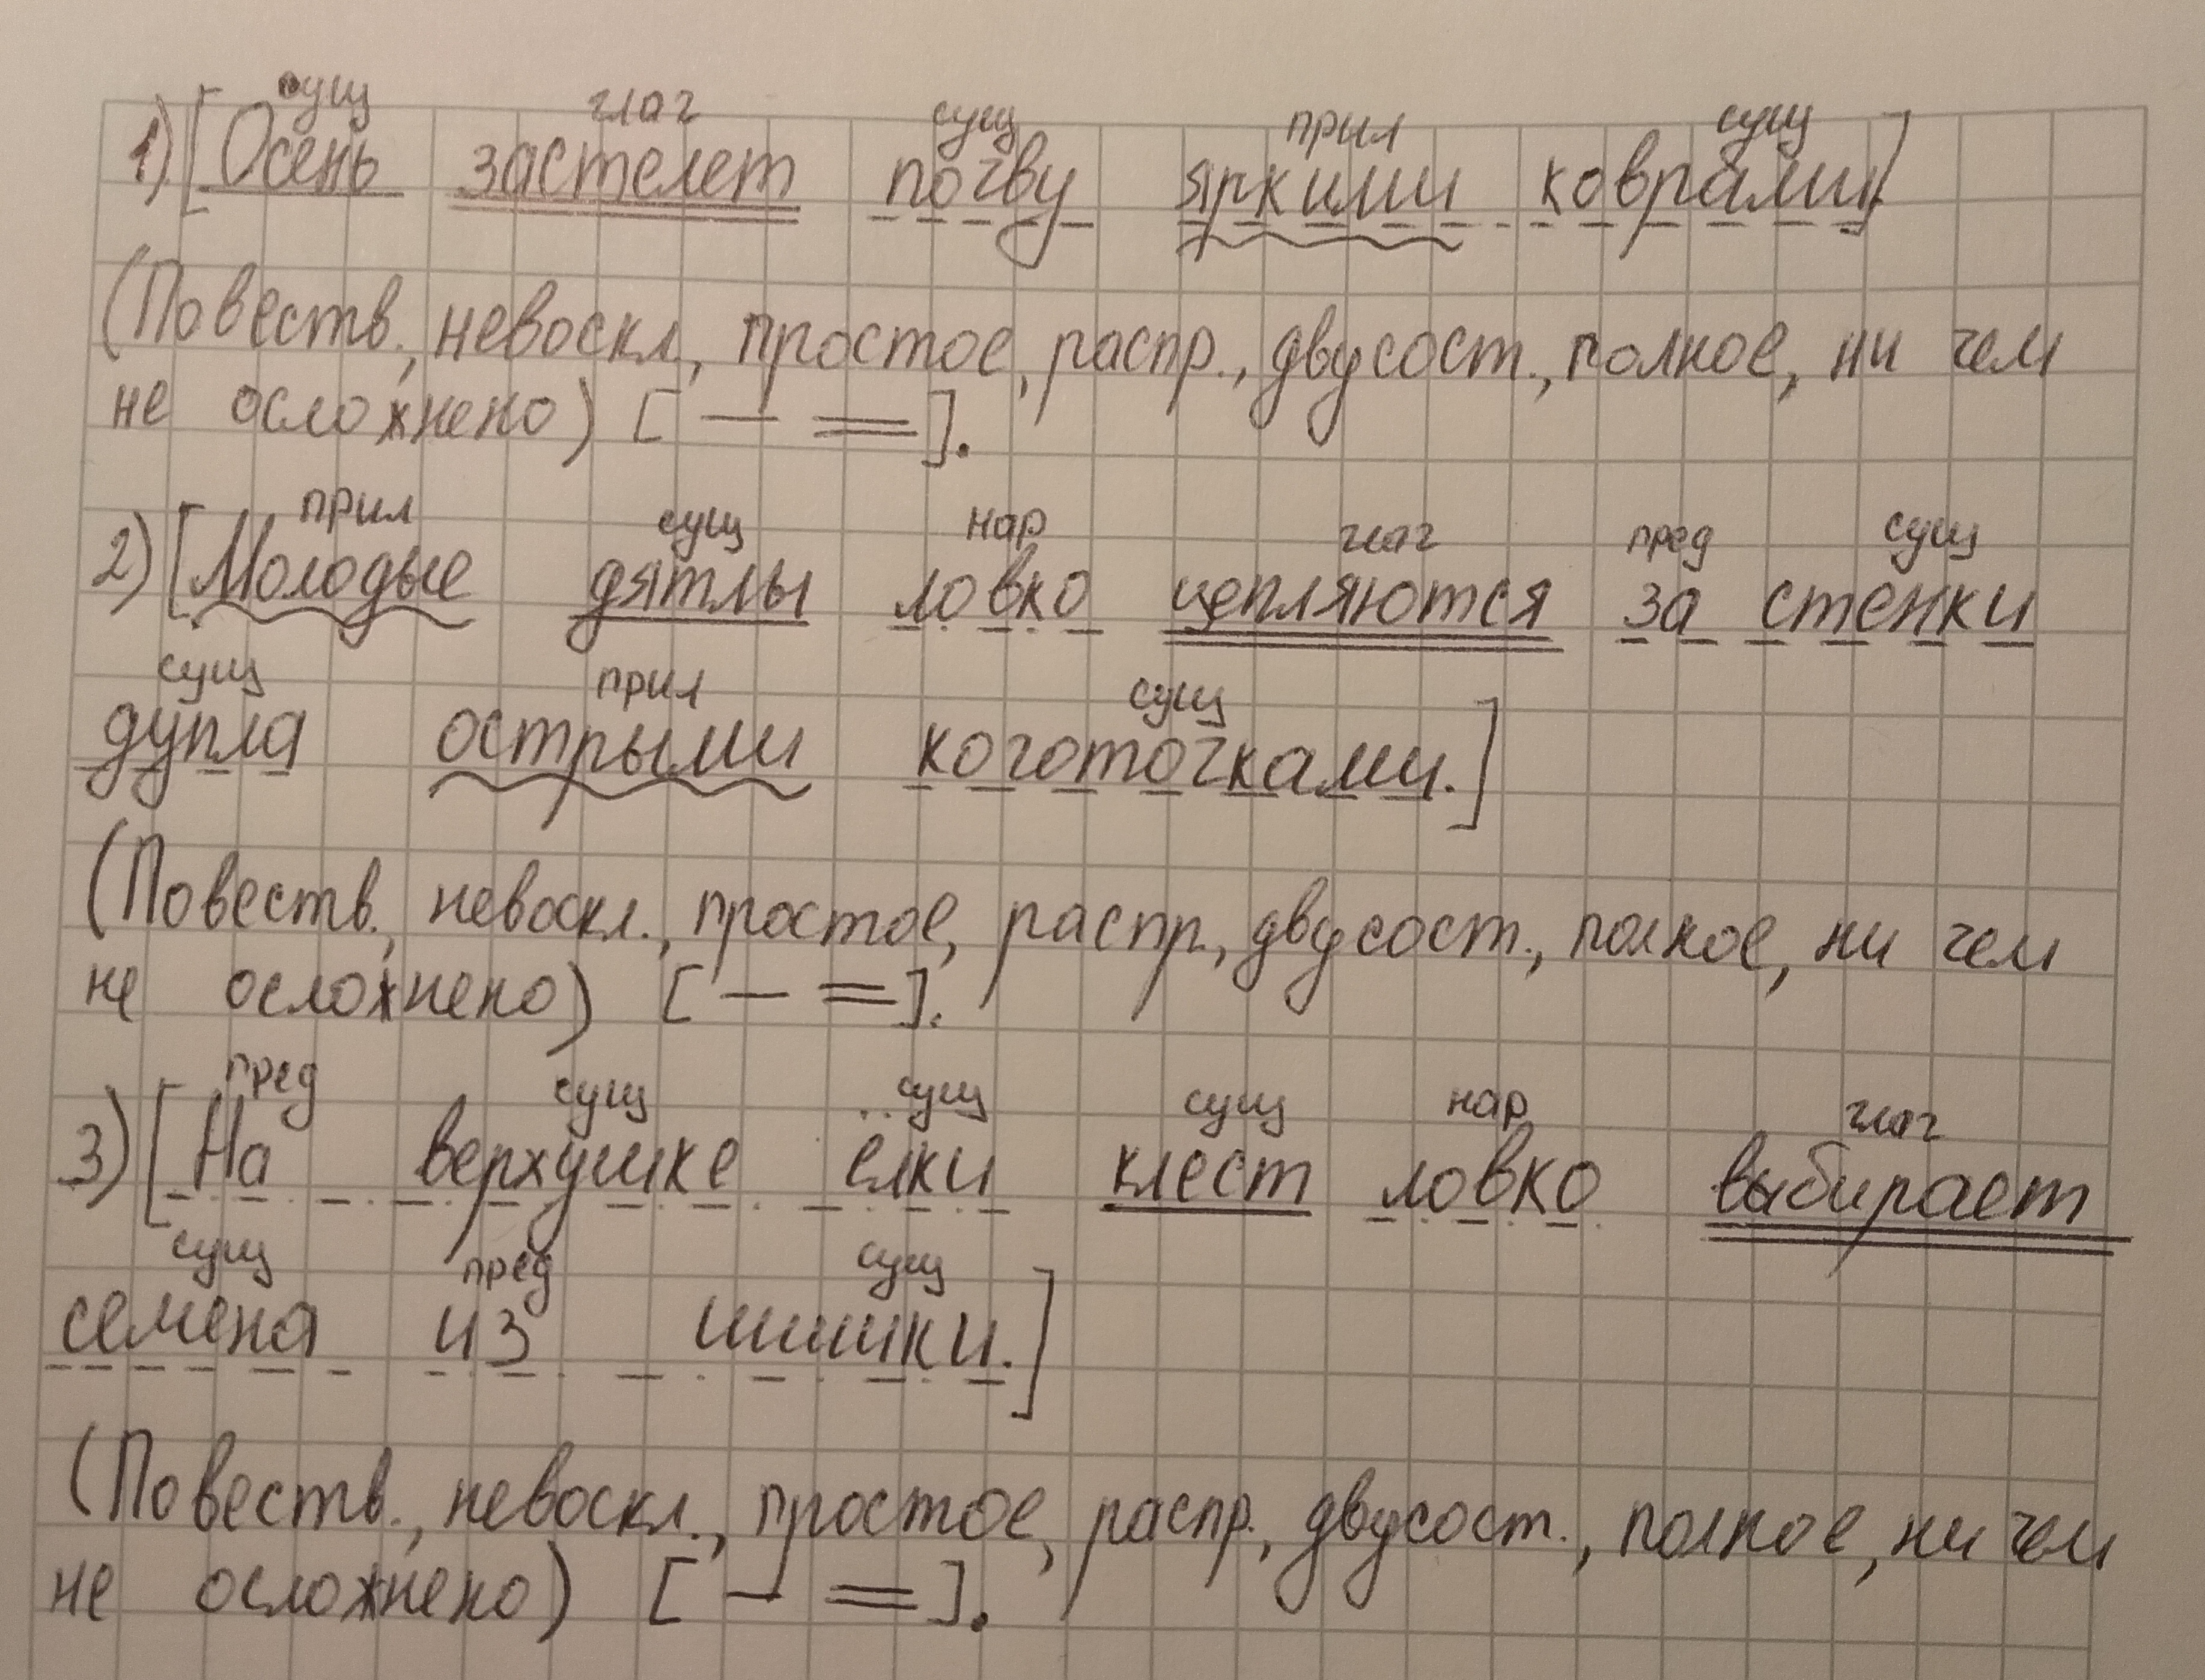 сущ глаг сущ прил сущ
1) [Осень застелет почву яркими коврами]
(Повеств., невоскл., простое, распр., двусост., полное, ни чем
не осложнено) [— =].
прил сущ нар глаг пред сущ
2) [Молодые дятлы ловко цепляются за стенки
сущ прил сущ
дупла острыми коготочками.]
(Повеств., невоскл., простое, распр., двусост., полное, ни чем
не осложнено) [— =].
пред сущ сущ сущ нар глаг
3) [На верхушке ёлки клест ловко выбирает
сущ пред сущ
семена из шишки.]
(Повеств., невоскл., простое, распр., двусост., полное, ни чем
не осложнено) [— =].